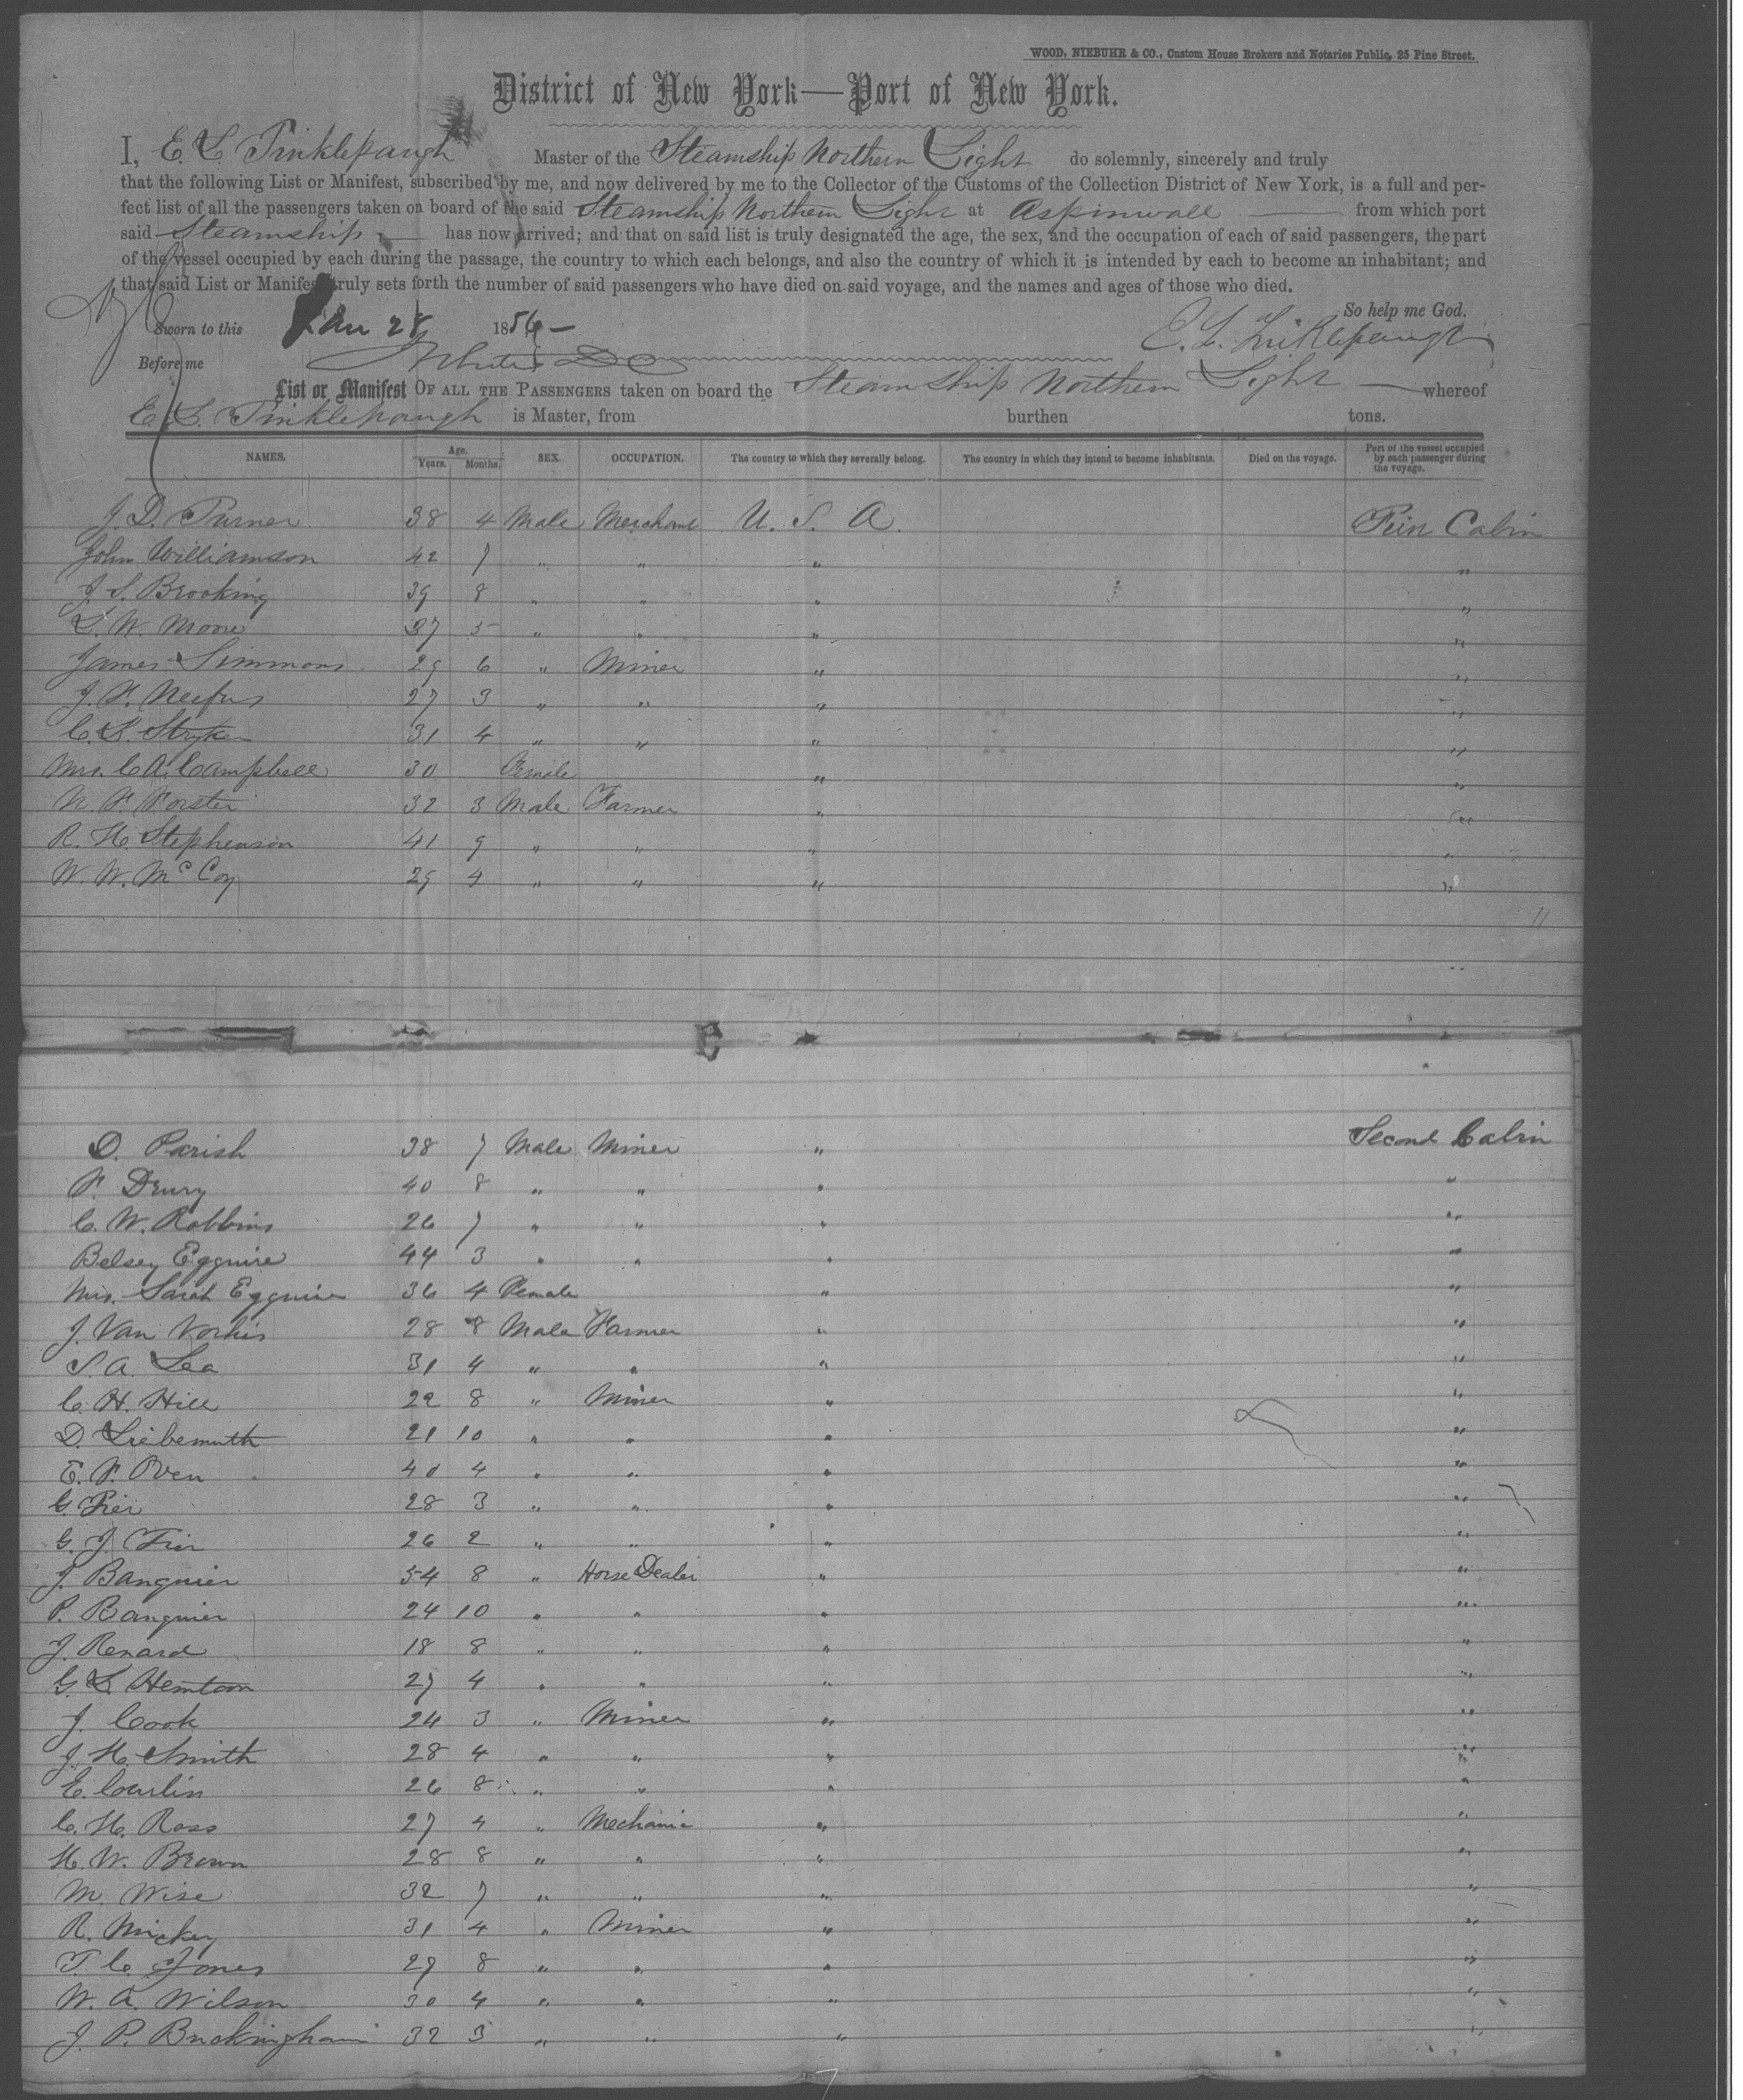 WOOD, NIEBUHR & CO., Custom House Brokers and Notaries Public, 25 Pine Street.
District of New York—Port of New York.
I, E. L. Tinklepaugh Master of the Steamship Northern Light do solemnly, sincerely and truly
that the following List or Manifest, subscribed by me, and now delivered by me to the Collector of the Customs of the Collection District of New York, is a full and per-
fect list of all the passengers taken on board of the said Steamship Northern Light at Aspinwall — from which port
said Steamship — has now arrived; and that on said list is truly designated the age, the sex, and the occupation of each of said passengers, the part
of the vessel occupied by each during the passage, the country to which each belongs, and also the country of which it is intended by each to become an inhabitant; and
that said List or Manifest truly sets forth the number of said passengers who have died on said voyage, and the names and ages of those who died.
So help me God.
Sworn to this Jan 28 1856 — E. L. Tinklepaugh
Before me
List or Manifest OF ALL THE PASSENGERS taken on board the Steam Ship Northern Light — whereof
E. L. Tinklepaugh is Master, from burthen tons.
NAMES. Age. Years. Months. SEX. OCCUPATION. The country to which they severally belong. The country in which they intend to become inhabitants. Died on the voyage. Part of the vessel occupied by each passenger during the voyage.
J. D. Turner 38 4 Male Merchant U. S. A. Cabin
John Williamson 42 7 " " " "
J. S. Brooking 39 8 " " " "
L. W. Moore 37 5 " " " "
James Simmons 29 6 " Miner " "
J. F. Neefus 27 3 " " " "
C. S. Stryker 31 4 " " " "
Mrs. C. A. Campbell 30 Female " "
N. F. Forster 32 3 Male Farmer " "
R. H. Stephenson 41 9 " " " "
W. W. McCoy 29 4 " " " "
11
D. Parish 38 7 Male Miner " Second Cabin
F. Drury 40 8 " " " "
C. W. Robbins 26 7 " " " "
Belsey Egguire 44 3 " " " "
Mrs. Sarah Egguire 36 4 Female " "
J. Van Vorhis 28 8 Male Farmer " "
S. A. Lea 31 4 " " " "
C. H. Hill 22 8 " Miner " "
D. Liebemuth 21 10 " " " "
E. F. Oven 40 4 " " " "
G. Fier 28 3 " " " "
G. J. Fier 26 2 " " " "
J. Banquier 54 8 " Horse Dealer " "
P. Banquier 24 10 " " " "
J. Renard 18 8 " " " "
G. L. Hemtom 27 4 " " " "
J. Cook 24 3 " Miner " "
J. H. Smith 28 4 " " " "
E. Courlin 26 8 " " " "
C. H. Ross 27 4 " Mechanic " "
H. W. Brown 28 8 " " " "
M. Wise 32 7 " " " "
R. Mickey 31 4 " Miner " "
T. C. Jones 29 8 " " " "
W. A. Wilson 30 4 " " " "
J. P. Buckingham 32 3 " " " "